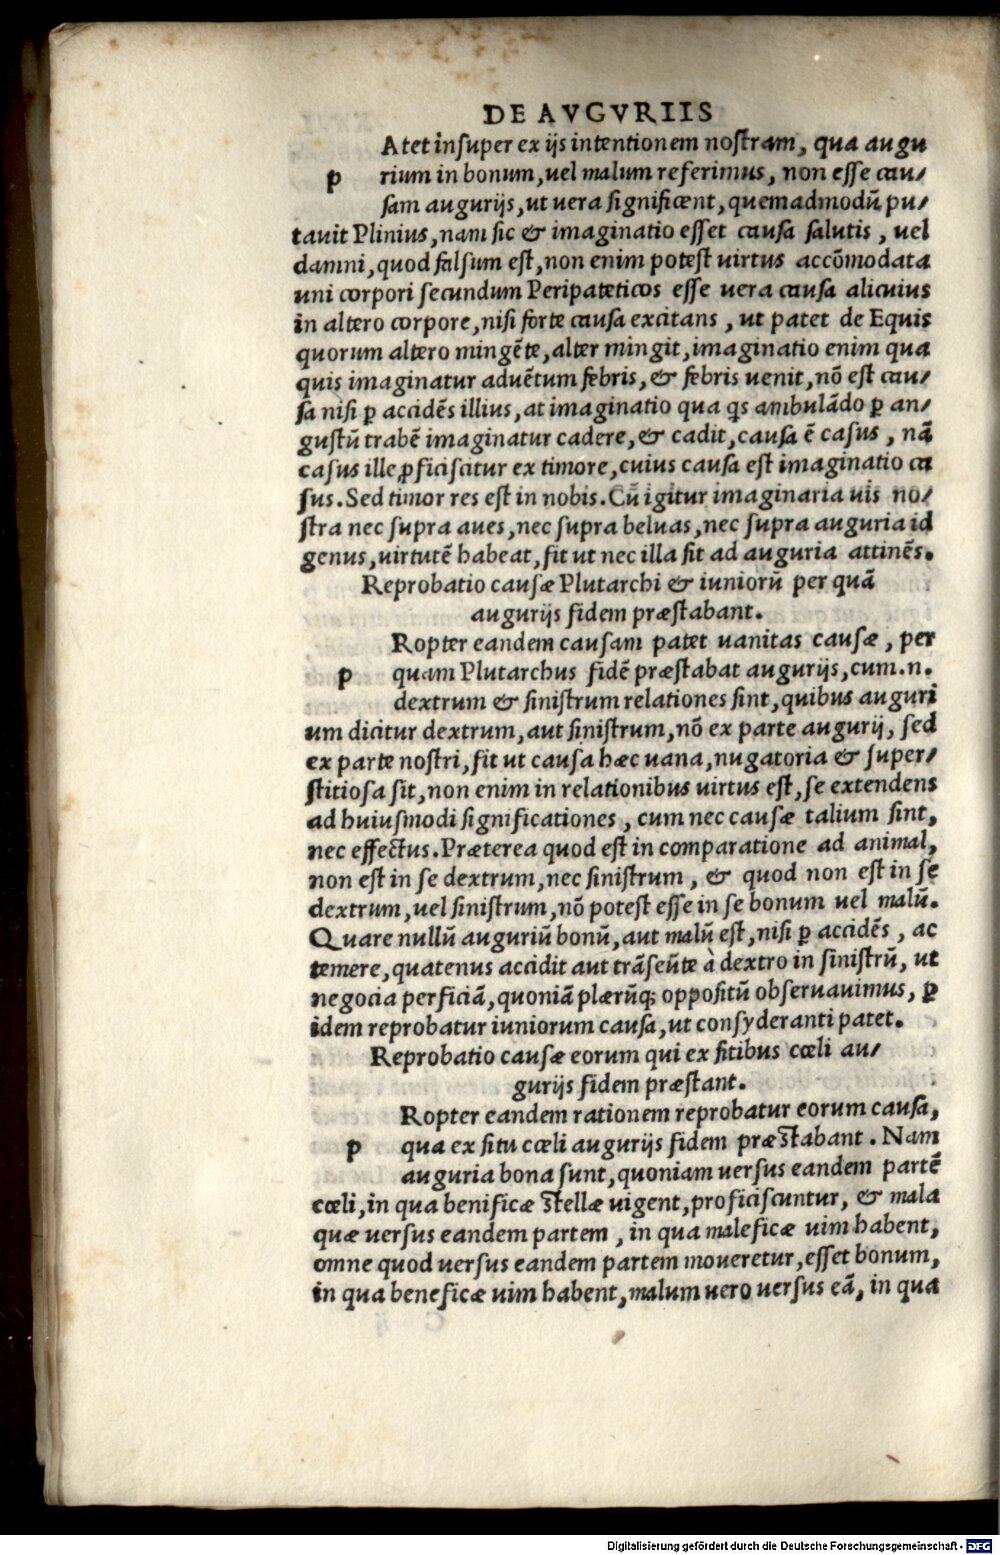 DE AVGVRIIS
Atet inſuper ex ijs intentionem noſtram, qua augu
p rium in bonum, uel malum referimus, non eſſe cau/
ſam augurijs, ut uera ſignificent, quemadmodũ pu/
tauit Plinius, nam ſic & imaginatio eſſet cauſa ſalutis, uel
damni, quod falſum eſt, non enim poteſt uirtus accõmodata
uni corpori ſecundum Peripateticos eſſe uera cauſa alicuius
in altero corpore, niſi forte cauſa excitans, ut patet de Equis
quorum altero mingẽte, alter mingit, imaginatio enim qua
quis imaginatur aduẽtum febris, & febris uenit, nõ eſt cau/
ſa niſi ꝑ accidẽs illius, at imaginatio qua qs ambulãdo ꝑ an/
guſtũ trabẽ imaginatur cadere, & cadit, cauſa ẽ caſus, nã
caſus ille ꝓficiſcitur ex timore, cuius cauſa eſt imaginatio ca
ſus. Sed timor res eſt in nobis. Cũ igitur imaginaria uis no/
ſtra nec ſupra aues, nec ſupra beluas, nec ſupra auguria id
genus, uirtutẽ habeat, fit ut nec illa ſit ad auguria attinẽs.
Reprobatio cauſæ Plutarchi & iuniorũ per quã
augurijs fidem præſtabant.
Ropter eandem cauſam patet uanitas cauſæ, per
p quam Plutarchus fidẽ præſtabat augurijs, cum .n.
dextrum & ſiniſtrum relationes ſint, quibus auguri
um dicitur dextrum, aut ſiniſtrum, nõ ex parte augurij, ſed
ex parte noſtri, fit ut cauſa hæc uana, nugatoria & ſuper/
ſtitioſa ſit, non enim in relationibus uirtus eſt, ſe extendens
ad huiuſmodi ſignificationes, cum nec cauſæ talium ſint,
nec effectus. Præterea quod eſt in comparatione ad animal,
non eſt in ſe dextrum, nec ſiniſtrum, & quod non eſt in ſe
dextrum, uel ſiniſtrum, nõ poteſt eſſe in ſe bonum uel malũ.
Quare nullũ auguriũ bonũ, aut malũ eſt, niſi ꝑ accidẽs, ac
temere, quatenus accidit aut trãſeũte à dextro in ſiniſtrũ, ut
negocia perficiã, quoniã plærũq; oppoſitũ obſeruauimus, ꝑ
idem reprobatur iuniorum cauſa, ut conſyderanti patet.
Reprobatio cauſæ eorum qui ex ſitibus cœli au/
gurijs fidem præſtant.
Ropter eandem rationem reprobatur eorum cauſa,
p qua ex ſitu cœli augurijs fidem præſtabant. Nam
auguria bona ſunt, quoniam uerſus eandem partẽ
cœli, in qua benificæ ſtellæ uigent, proficiſcuntur, & mala
quæ uerſus eandem partem, in qua maleficæ uim habent,
omne quod uerſus eandem partem moueretur, eſſet bonum,
in qua beneficæ uim habent, malum uero uerſus eã, in qua
Digitalisierung gefördert durch die Deutsche Forschungsgemeinschaft - DFG